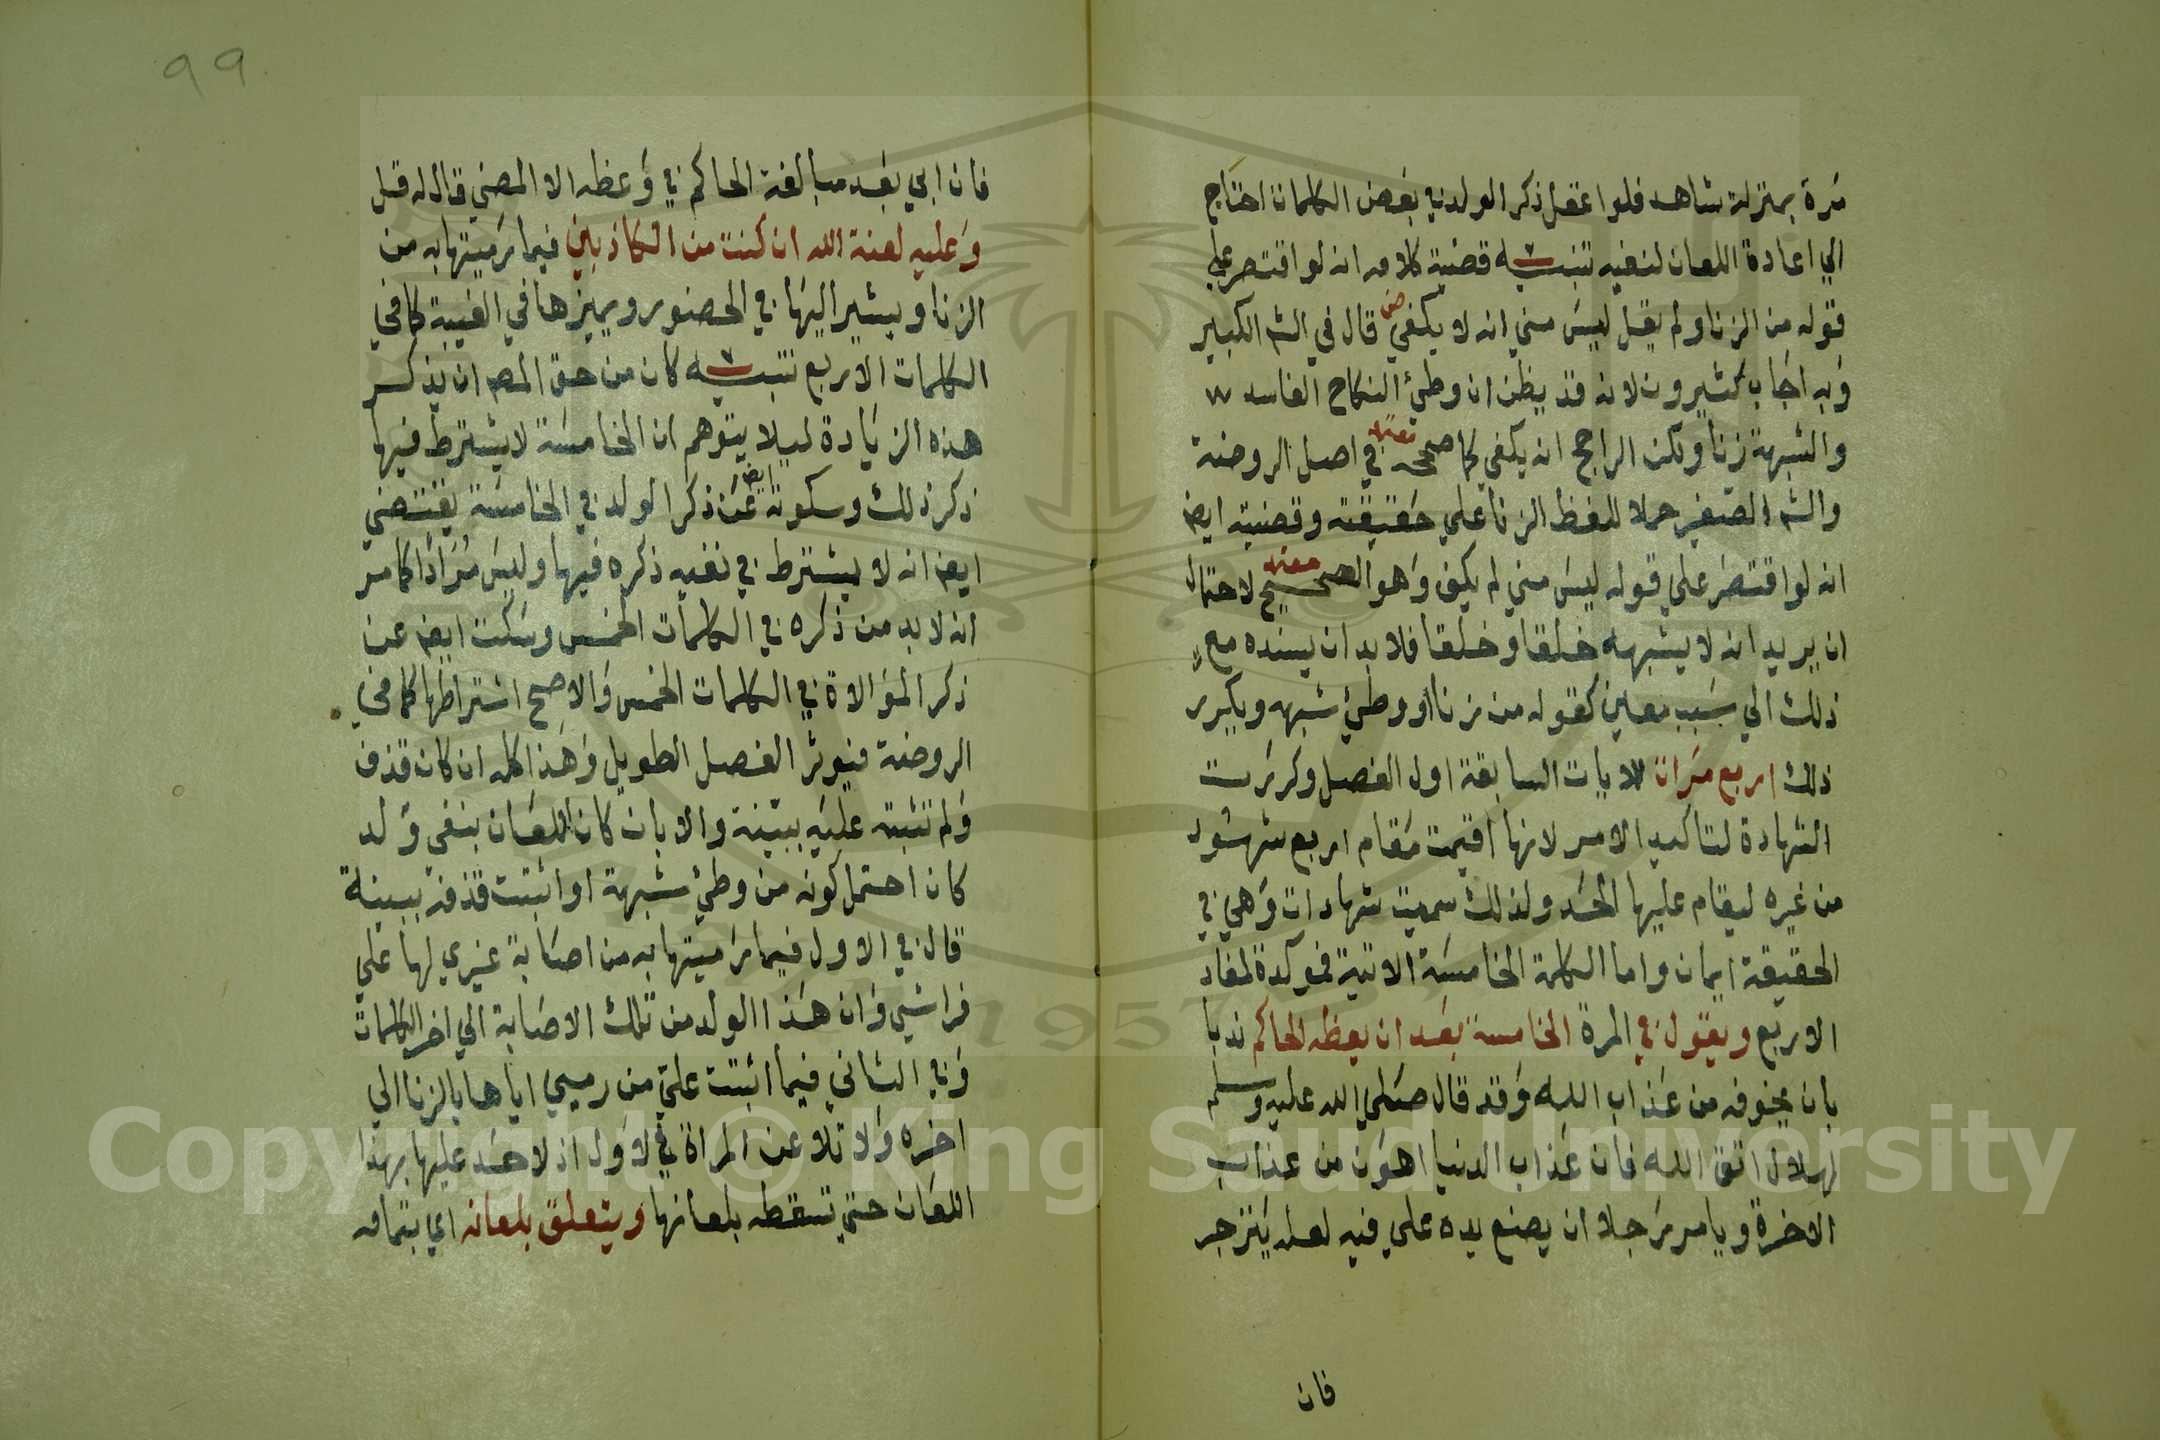 مرة بمنزلة شاهد فلوا غفل ذكر الولد في بعض الكلمات احتاج
الي اعادة اللعان لنفيه تنبيه قضية كلامه انه لو اقتصر علي
قوله من الزنا ولم يقل ليس مني انه لا يكفي قال في الشر الكبير
وبه اجاب كثيرون لانه قد يظن ان وطئ النكاح الفاسد
والشبهة زنا ولكن الراجح انه يكفي كما صححه في اصل الروضة
والشر الصغير حملا للفظ الزنا علي حقيقته وقضيته ايض
انه لو اقتصر علي قوله ليس مني لم يكف وهو الصحيح لاحتمال
ان يريد انه لا يشبهه خلقا وخلقا فلا بد ان يسنده مع
ذلك الي سبب معين كقوله من زنا او وطئ شبهه ويكرر
ذلك اربع مرات للايات السابقة اول الفصل وكررت
الشهادة لتاكيد الامر لانها اقيمت مقام اربع شهود
من غيره ليقام عليها الحد ولذلك سميت شهادات وهي في
الحقيقة ايمان واما الكلمة الخامسة الاتية فموكدة لمفاد
الاربع ويقول في المرة الخامسة بعد ان يعظه الحاكم ندبا
بان يخوفه من عذاب الله وقد قال صلي الله عليه وسلم
لهلال اتق الله فان عذاب الدنيا اهون من عذاب
الاخرة ويامر رجلا ان يضع يده علي فيه لعله ينزجر
فان
٩٩
فان ابي بعد مبالغة الحاكم في وعظه الا المضي قال له قل
وعليه لعنة الله ان كنت من الكاذبين فيما رميتها به من
الزنا ويشير اليها في الحضور ويميزها في الغيبة كما في
الكلمات الاربع تنبيه كان من حق المص ان يذكر
هذه الزيادة ليلا يتوهم ان الخامسة لا يشترط فيها
ذكر ذلك وسكوته ايض عن ذكر الولد في الخامسة يقتضي
ايض انه لا يشترط في نفيه ذكره فيها وليس مرادا كما مر
انه لا بد من ذكره في الكلمات الخمس وسكت ايض عن
ذكر الموالاة في الكلمات الخمس والاصح اشتراطها كما في
الروضة فيوثر الفصل الطويل وهذا كله ان كان قذف
ولم تثبته عليه ببينة والا بان كان اللعان بنفي ولد
كان احتمل كونه من وطئ شبهة او اثبتت قذفه ببينة
قال في الاول فيما رميتها به من اصابة غيري لها علي
فراشي وان هذا الولد من تلك الاصابة الي اخر الكلمات
وفي الثاني فيما اثبتت علي من رميي اياها بالزنا الي
اخره ولا تلاعن المراة في الاول اذ لا حد عليها بهذا
اللعان حتي تسقطه بلعانها ويتعلق بلعانه اي بتمامه
Copyright © King Saud University
1957